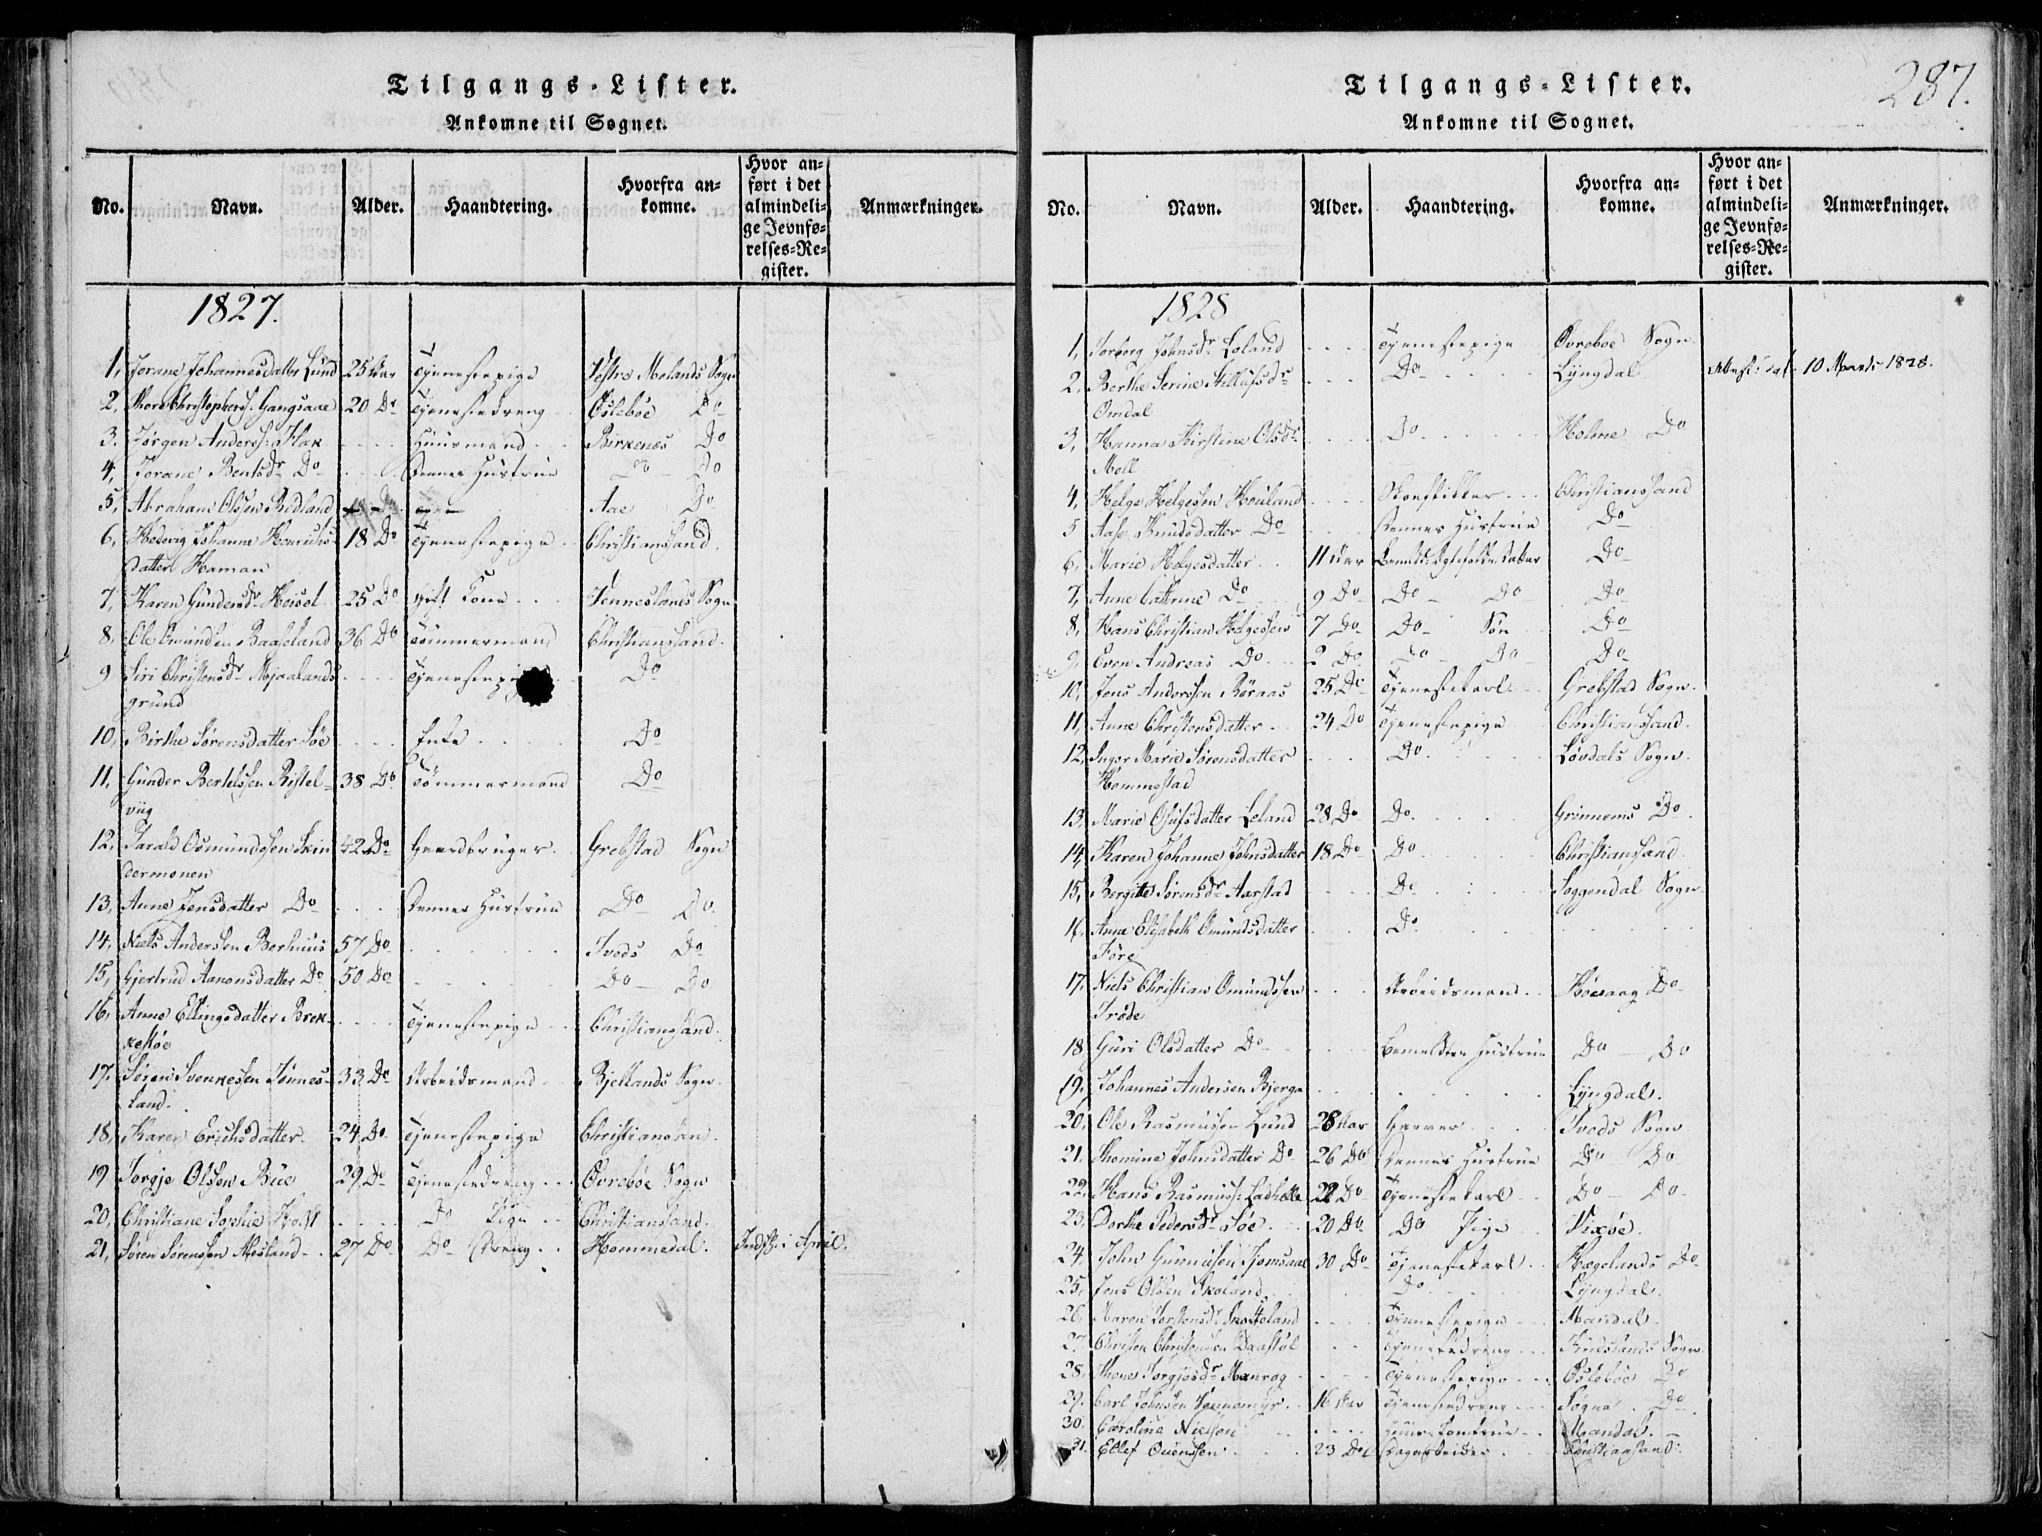 Tilgangs-Lister.
Ankomne til Sognet.
No. Navn. Alder. Haandtering. Hvorfra ankomne. Hvor anført i det almindelige Jevnførelses-Register. Anmærkninger.
1827.
1, Jorane Johannesdatter Lund 25 Aar Tjenestepige Vestre Molands Sogn
2, Thore Christophers: Gangsaae 20 Do Tjenestedreng Oslebøe Do
3. Jørgen Anders: Flak Huusmand Birkenes Do
4, Jorane Bentsdr Do Dennes Hustrue Do Do
5, Abraham Olsen Birkeland Aae Do
6, Hedevig Johanne Henrichs- 18 Do Tjenestepige Christianssand.
datter Haman
7, Karen Gundersdr Heisel 25 Do gift Kone Vennesland Sogn
8, Ole Omundsen Baaseland 36 Do Tømmermand Christianssand.
9 Siri Christensdr Mjaalands- Tjenestepige Do
grund
10, Birthe Sørensdatter Søe Enke Do
11, Gunder Bertelssen Ristel- 38 Do Tømmermand Do
viig
12, Tarald Osmundssen Skin 42 Do Gaardbruger Grebstad Sogn
dermonen
13, Anne Jensdatter Do Dennes Hustrue Do Do
14, Niels Andersen Berhuus 57 Do Tveds Do
15, Gjertrud Aanonsdatter Do 50 Do Do Do
16, Anne Ellingsdatter Brek- Tjenestepige Christianssand.
kestøe
17. Søren Svenkesen Tønnes- 33 Do Arbeidsmand Bjellands Sogn
land.
18, Karen Erichsdatter 24 Do Tjenestepige Christianssan.
19 Torgje Olsen Bue 29 Do Tjenestedreng Øvrebøe Sogn
20, Christiane Sophie Holst Do Pige Christianssand.
21, Søren Sørenssen Aesland 27 Do Do Dreng Hommedal. Indsk: i April.
Tilgangs-Lister.
Ankomne til Sognet.
287.
No. Navn. Alder. Haandtering. Hvorfra ankomne. Hvor anført i det almindelige Jevnførelses-Register. Anmærkninger.
1828
1, Torborg Johnsdr Loland Tjenestepige Øvrebøe Sogn
2, Berthe Serine Stillufsdr Do Lyngdal 10 Marts 1828.
Omdal
3, Hanna Kirstine Olsdr Do Holme Do
Moll
4, Helge Helgesen Houland Skoeflikker Christianssand
5 Aase Knudsdatter Do Dennes Hustrue Do
6, Marie Helgesdatter 11 Aar Bemeldte Ægtefolks Datter Do
7, Anne Cathrine Do 9 Do Do Do Do
8, Hans Christian Helgessen 7 Do Do Søn Do
9, Even Andreas Do 2 Do Do Do Do
10, Jens Anderssen Røraas 25 Do Tjenestekarl Grebstad Sogn
11, Anne Christensdatter 24 Do Tjenestepige Christianssand.
12, Inger Marie Sørensdatter Do Løvdals Sogn
Hommestad
13, Marie Osulsdatter Leland 28 Do Do Grinnems Do
14, Karen Johanne Johnsdatter 18 Do Do Christianssand
15, Bergite Sørensdr Aarstad Do Soggendal Sogn
16, Anne Elisabeth Omundsdatter Do
Føre
17, Niels Christian Omundssen Arbeidsmand Høevaag Do
Trøde
18 Guri Olsdatter Do Bemeldtes Hustrue Do Do
19, Johannes Andersen Bjerga Lyngdal.
20, Ole Rasmussen Lund 28 Aar Garver Tveds Sogn
21, Thomine Johnsdatter Do 26 Do Dennes Hustrue Do Do
22, Hans Rasmuss: Ladhelle 22 Do Tjenestekarl Do Do
23, Dorthe Pedersdr Søe 20 Do Do Pige Vixøe.
24, John Gunnufsen Fjomsaas 30 Do Tjenestekarl Hægelands Do
25, Jens Olsen Skoland Do Lyngdal.
26, Maren Torstensdr Skotteland Tjenestepige Mandal
27, Christen Christensen Daastøl Tjenestedreng Finslands Sogn
28, Thone Torgjøsdr Manrog Tjenestepige Oslebøe Do
29, Carl Johnsen 16 Aar Tjenestedreng Søgne Do
30, Carolina Nielsen Mandal.
31, Ellef Ouensen 23 Do Dagarbeider Christianssand.